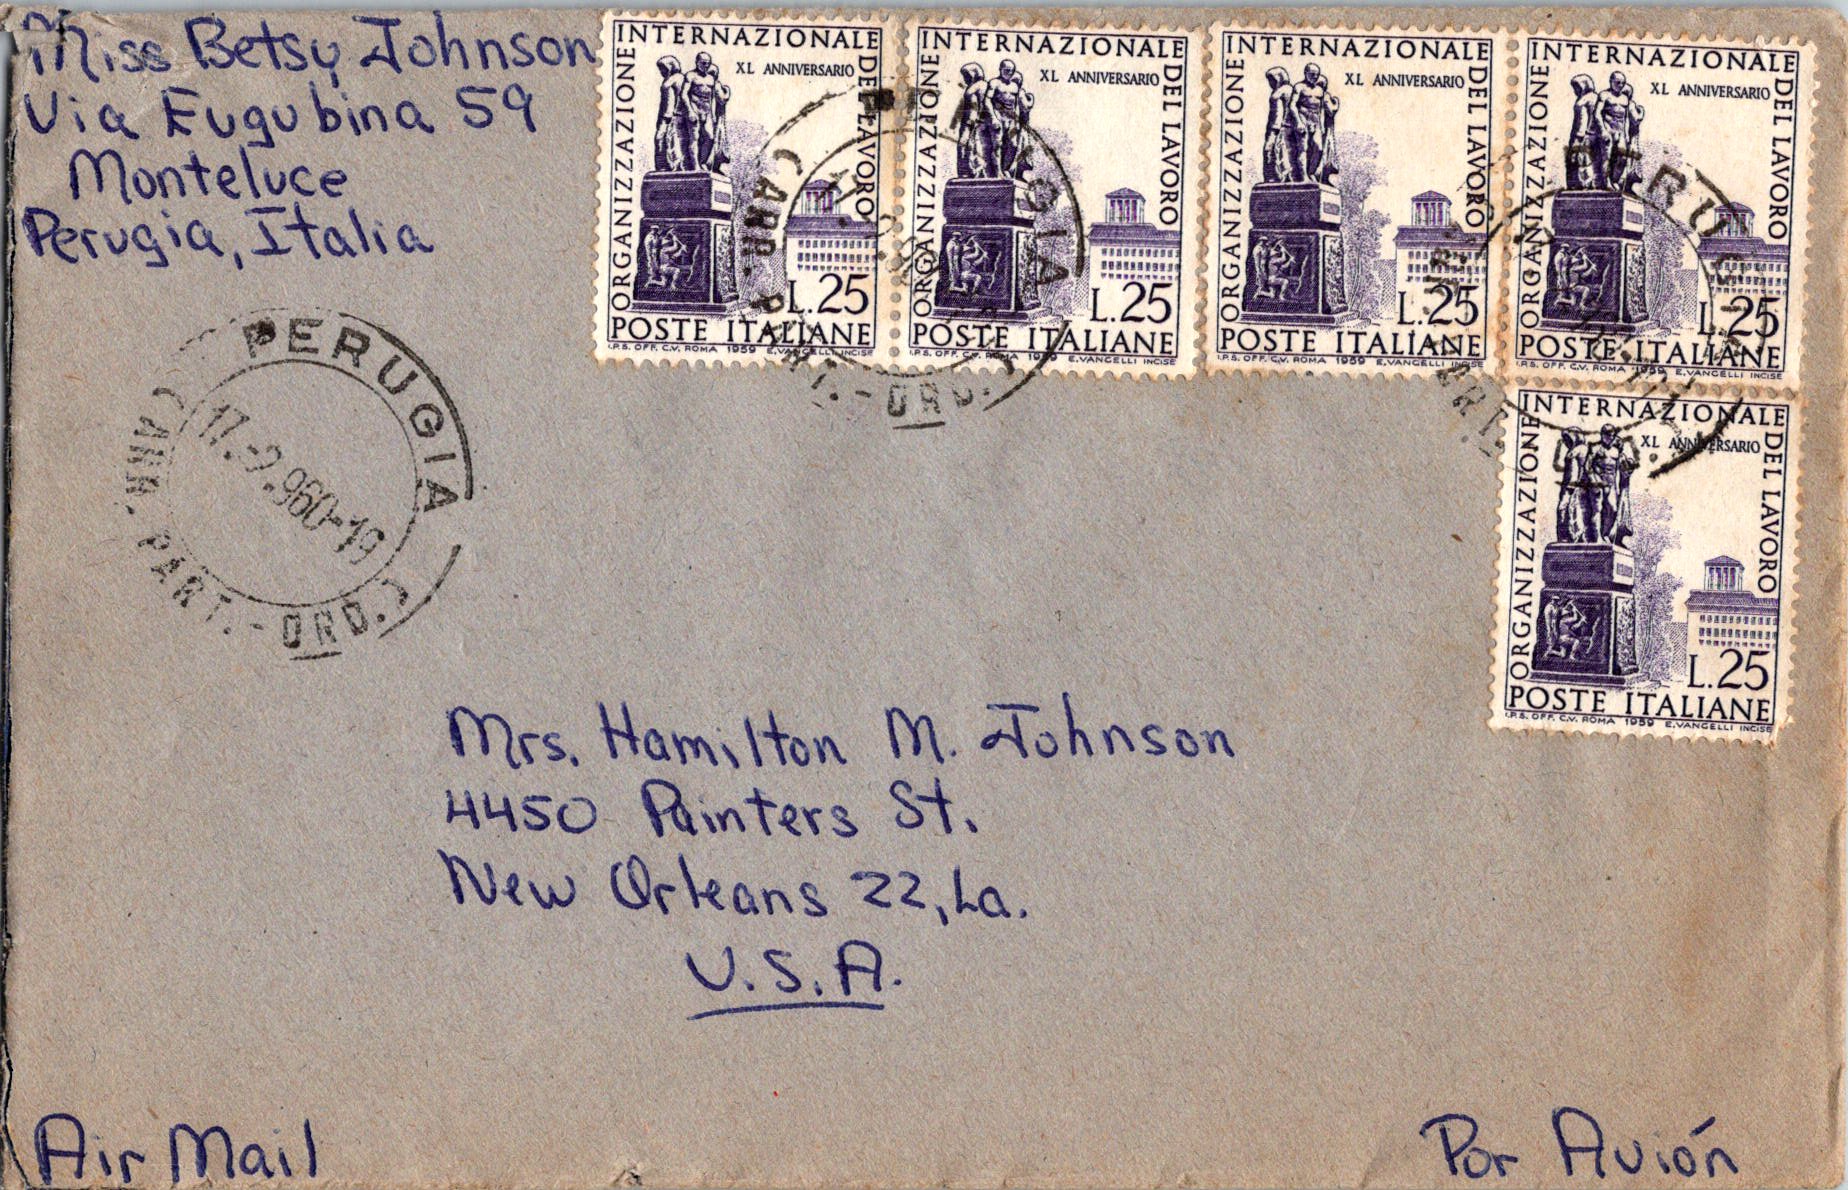 Miss Betsy Johnson
Via Eugubina 59
Monteluce
Perugia, Italia
ORGANIZZAZIONE INTERNAZIONALE DEL LAVORO
XL ANNIVERSARIO
L.25
POSTE ITALIANE
I.P.S. OFF. C.V. ROMA 1959 E.VANGELLI INCISE
ORGANIZZAZIONE INTERNAZIONALE DEL LAVORO
XL ANNIVERSARIO
L.25
POSTE ITALIANE
I.P.S. OFF. C.V. ROMA 1959 E.VANGELLI INCISE
ORGANIZZAZIONE INTERNAZIONALE DEL LAVORO
XL ANNIVERSARIO
L.25
POSTE ITALIANE
I.P.S. OFF. C.V. ROMA 1959 E.VANGELLI INCISE
ORGANIZZAZIONE INTERNAZIONALE DEL LAVORO
XL ANNIVERSARIO
L.25
POSTE ITALIANE
I.P.S. OFF. C.V. ROMA 1959 E.VANGELLI INCISE
ORGANIZZAZIONE INTERNAZIONALE DEL LAVORO
XL ANNIVERSARIO
L.25
POSTE ITALIANE
I.P.S. OFF. C.V. ROMA 1959 E.VANGELLI INCISE
PERUGIA
CARR. PART.-ORD.
PERUGIA
PERUGIA
17.-9.960-19
(ARR. PART.-ORD.)
Mrs. Hamilton M. Johnson
4450 Painters St.
New Orleans 22, La.
U.S.A.
Air Mail
Por Avión